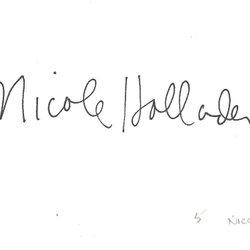 Nicole Hollander
5